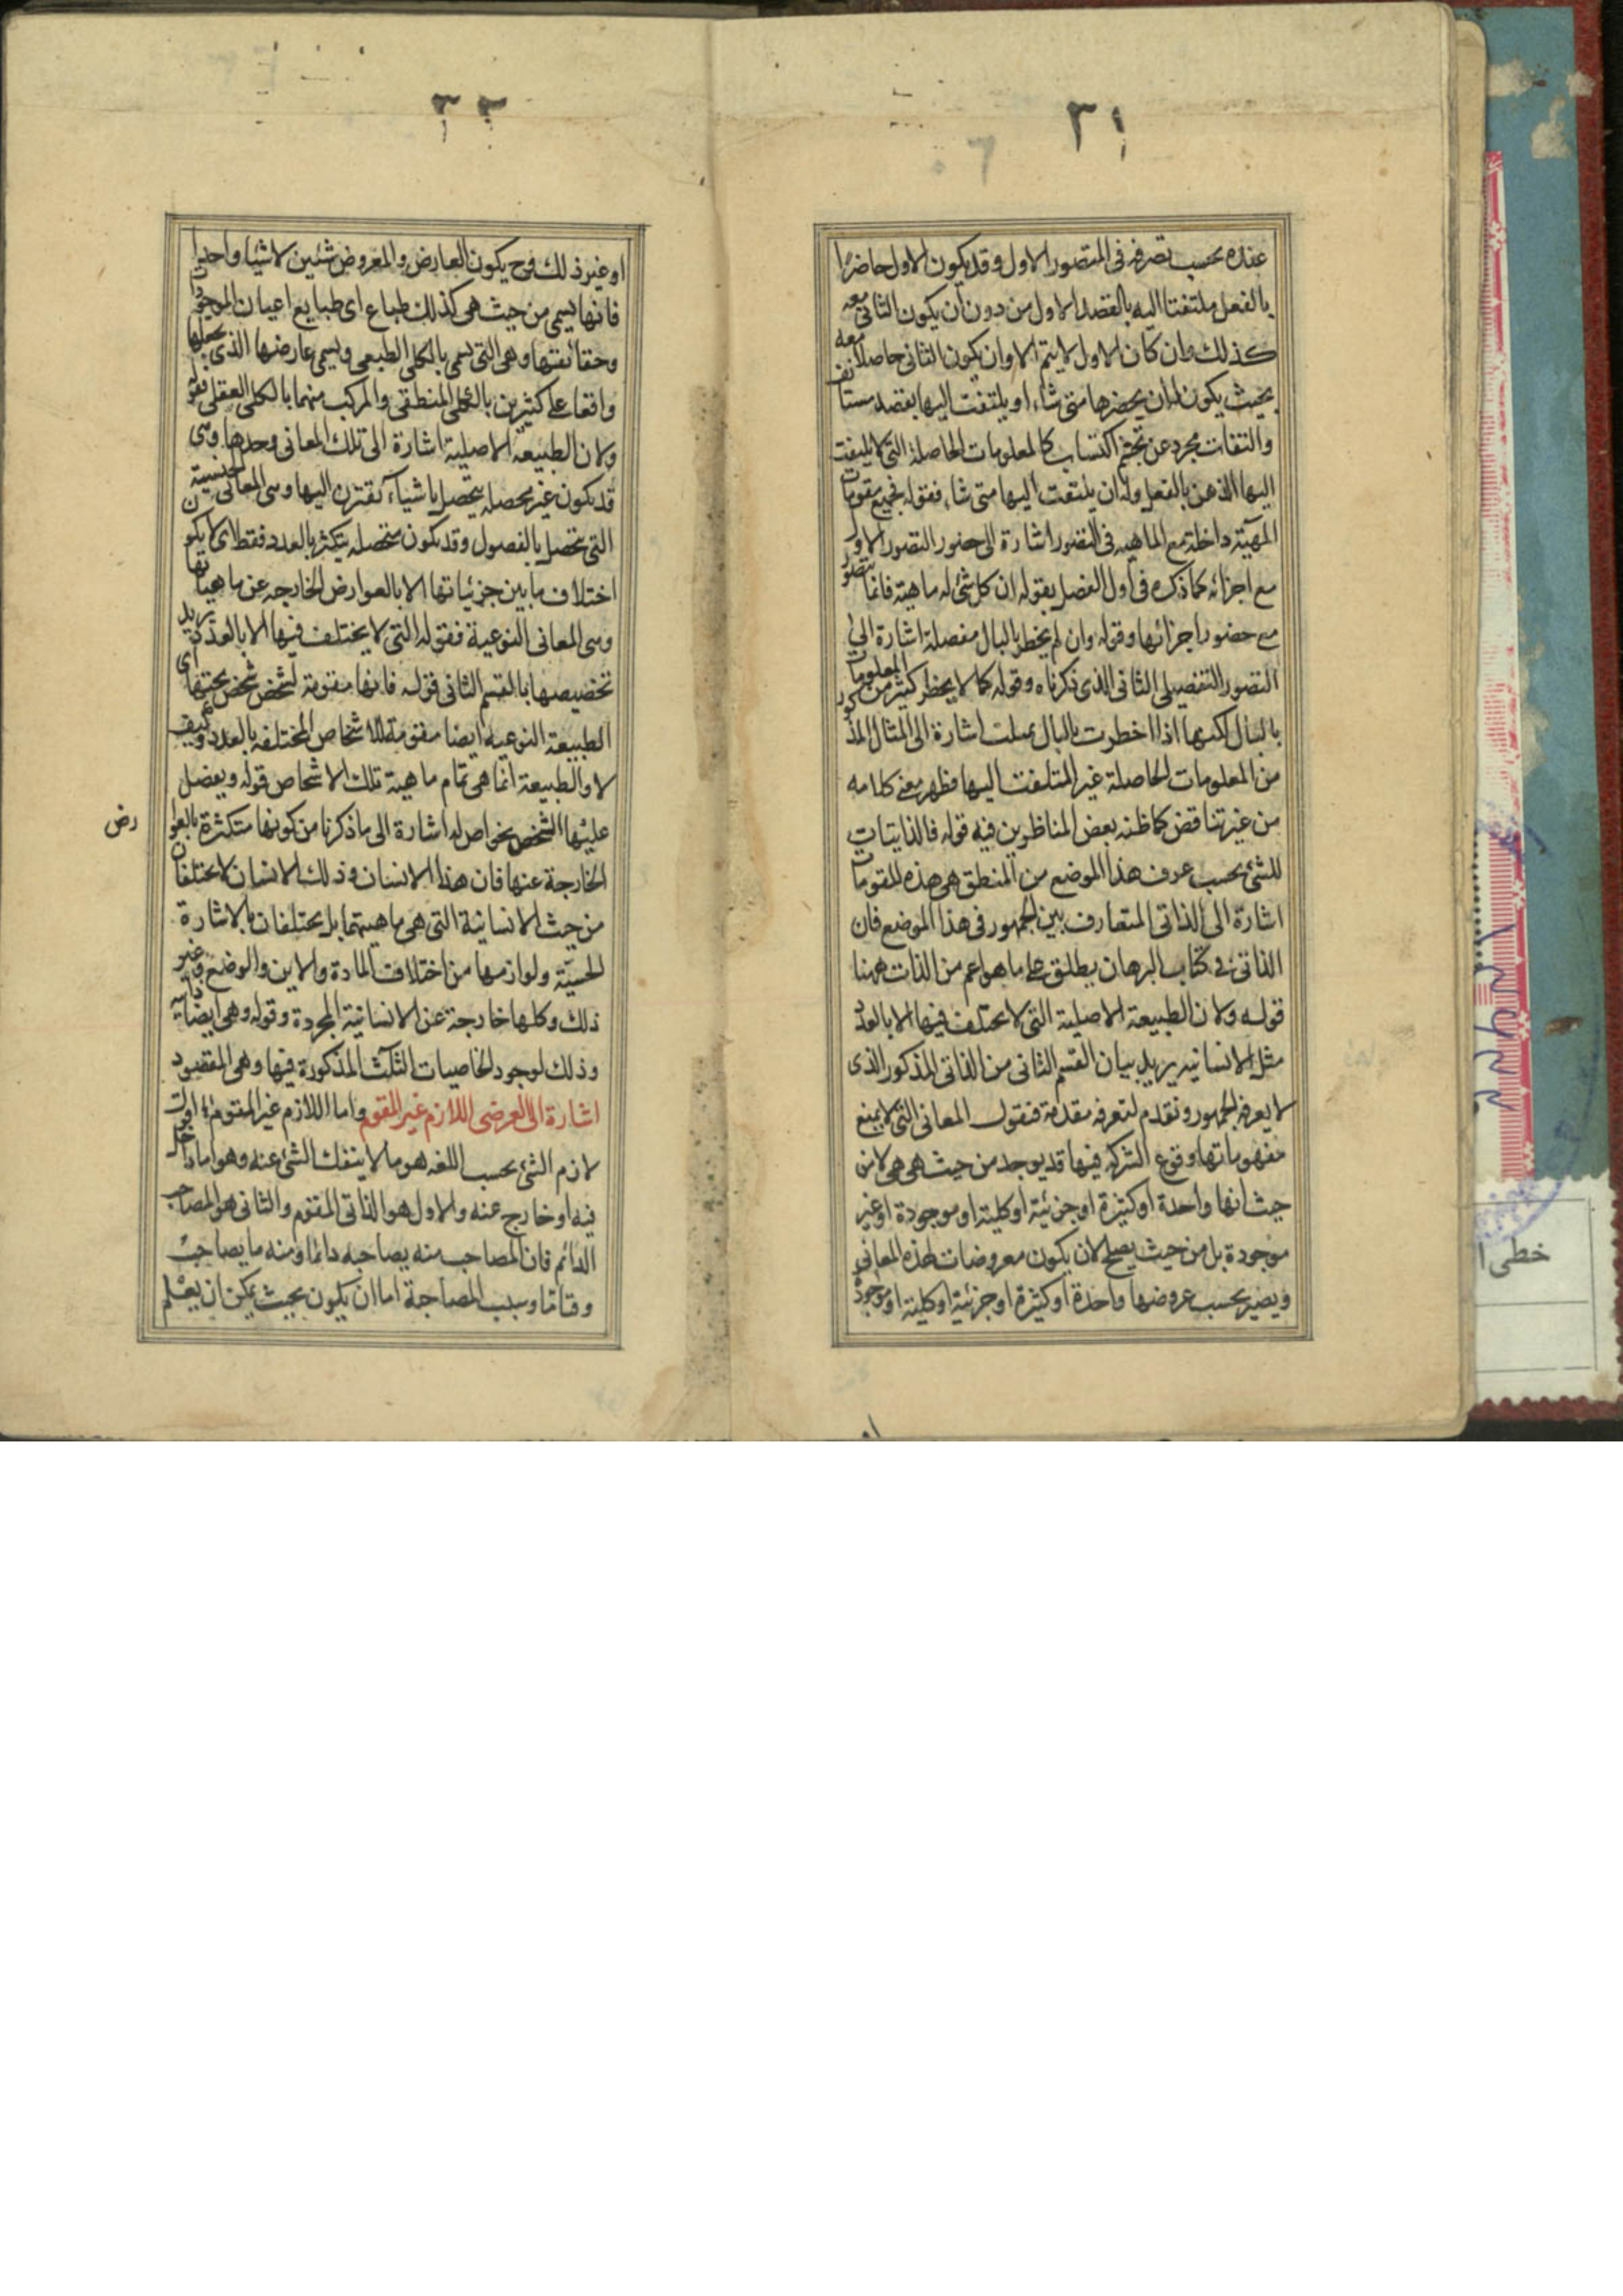 ٣١
عنده بحسب تصرفه فى المتصور الاول وقد يكون الاول حاضرا
بالفعل ملتفتا اليه بالقصد الاول من دون ان يكون الثانى معه
كذلك وان كان الاول لا يتم الا وان يكون الثانى حاصلا معه
بحيث يكون له ان يحضرها متى شاء او يلتفت اليها بقصد مستانف
والتفات مجرد عن تجشم اكتساب كالمعلومات الحاصلة التى لا يلتفت
اليها الذهن بالفعل وله ان يلتفت اليها متى شاء فقوله فجميع مقومات
المهية داخلة مع الماهيه فى التصور اشارة الى حضور التصور الاول
مع اجزائه كما ذكره فى اول الفصل بقوله ان كل شئ له ماهية فانما يتصور
مع حضور اجزائها وقوله وان لم يخطر بالبال مفصلة اشارة الى
التصور التفصيلى الثانى الذى ذكرناه وقوله كما لا يخطر كثير من المعلومات
بالبال لكنها اذا اخطرت بالبال تمثلت اشارة الى المثال المذكور
من المعلومات الحاصلة غير الملتفت اليها فظهر معنى كلامه
من غير تناقض كما ظنه بعض المناظرين فيه قوله فالذاتيات
للشئ بحسب عرف هذا الموضع من المنطق هى هذه المقومات
اشارة الى الذاتى المتعارف بين الجمهور فى هذا الموضع فان
الذاتى فى كتاب البرهان يطلق على ما هو اعم من الذات ههنا
قوله ولان الطبيعة الاصلية التى لا يختلف فيها الا بالعدد
مثل الانسانيه يريد بيان القسم الثانى من الذاتى المذكور الذى
لا يعرفه الجمهور ونقدم لتعرفه مقدمة فنقول المعانى التى لا يمنع
مفهوماتها وقوع الشركه فيها قد يوجد من حيث هى هى لا من
حيث انها واحدة او كثيرة او جزئية او كلية او موجودة او غير
موجودة بل من حيث يصلح لان يكون معروضات لهذه المعانى
ويصير بحسب عروضها واحدة او كثيرة او جزئية او كلية او موجودة
٣٢
او غير ذلك فح يكون العارض والمعروض شئين لا شيئا واحدا
فانها يسمى من حيث هى كذلك طباع اى طبايع اعيان الموجودات
وحقائقها وهى التى يسمى بالكلى الطبعى ويسمى عارضها الذى يجعلها
واقعا على كثيرين بالكلى المنطقى والمركب منهما بالكلى العقلى فقوله
ولان الطبيعة الاصلية اشارة الى تلك المعانى وحدها وهى
قد يكون غير محصله يتحصل باشياء تقترن اليها وهى المعانى الجنسية
التى يتحصل بالفصول وقد يكون متحصله يتكثر بالعدد فقط اى لا يكون
اختلاف ما بين جزئياتها الا بالعوارض الخارجه عن ماهياتها
وهى المعانى النوعية فقوله التى لا يختلف فيها الا بالعدد يريد
تخصيصها بالقسم الثانى قوله فانها مقومة لشخص شخص تحتها اى
الطبيعة النوعيه ايضا مقومة للاشخاص المختلفه بالعدد وكيف
لا والطبيعة انما هى تمام ماهية تلك الاشخاص قوله ويفضل
عليها الشخص بخواص له اشارة الى ما ذكرنا من كونها متكثرة بالعوا
رض
الخارجة عنها فان هذا الانسان وذلك الانسان لا يختلفان
من حيث الانسانية التى هى ماهيتهما بل يختلفان بالاشارة
الحسية ولوازمها من اختلاف المادة والاين والوضع وغير
ذلك وكلها خارجة عن الانسانية المجردة وقوله وهى ايضا ذاتية
وذلك لوجود الخاصيات الثلث المذكورة فيها وهى المقصود
اشارة الى العرضى اللازم غير المقوم واما اللازم غير المقوم اقول
لازم الشئ بحسب اللغه هو ما لا ينفك الشئ عنه وهو اما داخل
فيه او خارج عنه والاول هو الذاتى المقوم والثانى هو المصاحب
الدائم فان المصاحب منه يصاحبه دائما ومنه ما يصاحبه
وقتا ما وسبب المصاحبة اما ان يكون بحيث يمكن ان يعلم
خطى